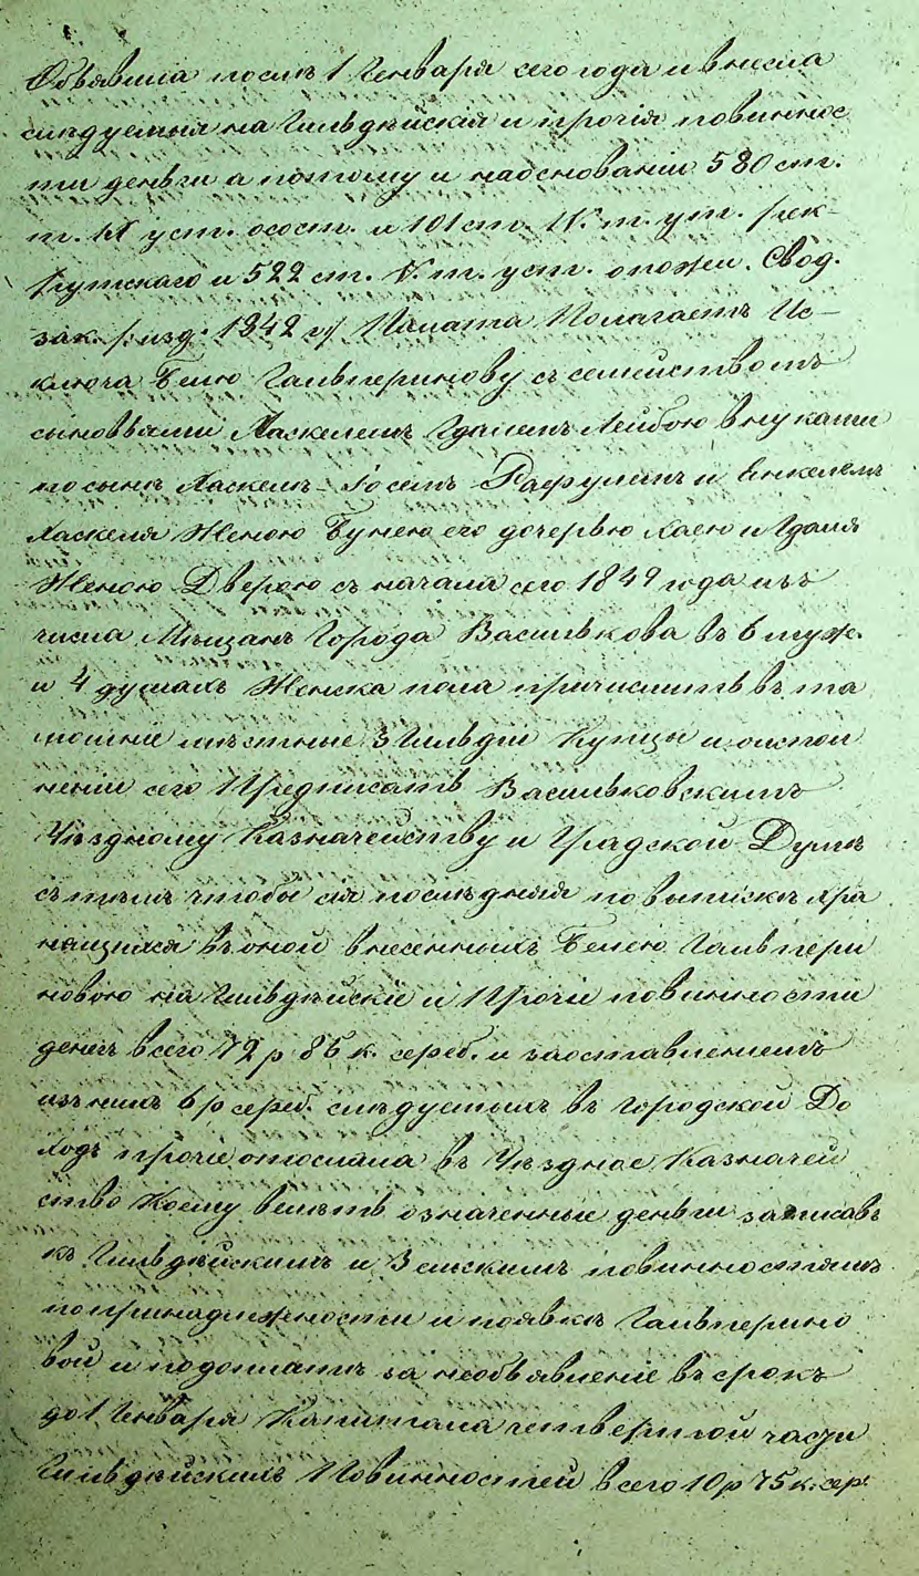 Объявила послѣ 1 Генваря сего года и внесла
слѣдуемыя на Гильдѣйскія и прочія повиннос
ти деньги а потому и наосновании 580 ст.
т. IX уст. осост. и 101 ст. IV. т. уст. рек-
рутскаго и 522 ст. V. т. уст. опошл. Свод.
зак. /:изд: 1842 г:/ Палата Полагаетъ Ис-
ключа Бейлю Гальперинову съ семействомъ
сыновьями Хаскелемъ Гдалемъ Лейбою внуками
по сынѣ Хаскелѣ- Іосемъ Рафулемъ и Янкелемъ
Хаскеля Женою Бунею его дочерью Хаею и Гдаля
Женою Дверою съ начала сего 1849 года изъ
числа Мѣщанъ Города Василькова въ 6 муж.
и 4 душахъ Женска пола причислить въ та
мошніе мѣстные 3 Гильдіи Купцы и оиспол
неніи сего Предписать Васильковскимъ
Уѣздному Казначейству и Градской Думѣ
съ тѣмъ чтобы сія послѣдняя повыпискѣ хра
нящихся въ оной внесенныхъ Бейлею Гальпери
новою на Гильдѣйскіе и Прочіе повинности
денегъ всего 72 р 86 к. сереб. и заоставленіемъ
изъ нихъ 6 р сереб. слѣдуемыхъ въ Городской До
ходъ прочіе отослала въ Уѣздное Казначей
ство Коему велѣть означенные деньги записавъ
къ Гильдѣйскимъ и Земскимъ повинностямъ
попринадлежности и появкѣ Гальперино
вой и подоплатѣ за необъявленіе въ срокъ
до 1 Генваря Капитала четвертой части
Гильдѣйскихъ Повинностей всего 10 р 75 к: сер: